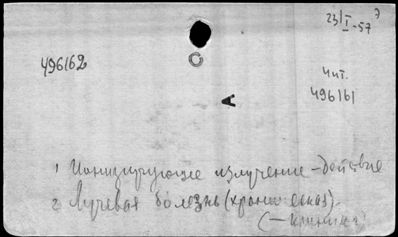 23/I-57 Э
496162
Чит.
496161
А
1 Ионизирующее излучение - действие
2 Лучевая болезнь (хроническая)
(- клиника)